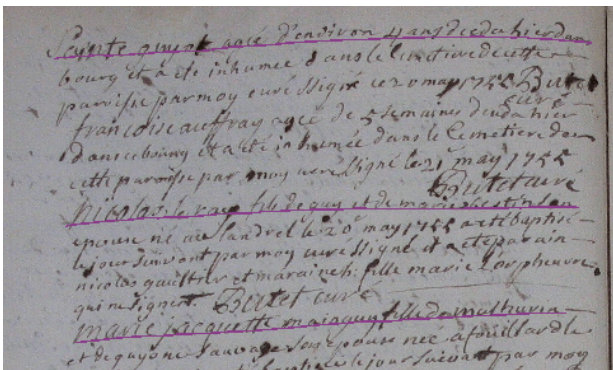 agé d'environ 4 ans decda hier dans
bourg et a ete inhumee dans le cimetiere de cette
paroisse par moy curé ssigné ce 20 may 1755 Butet
curé
francoise auffray agee de 5 semaines decda hier
dans ce bourg et a eté inhumée dans le Cemetiere de
cette paroisse par moy curé ssigné le 21 may 1755
Butet curé
Nicolas le ray fils de guy et de marie son
epouse né au landrel le 20 may 1755 a eté baptisé
le jour suivant par moy curé ssigné et a eté parain
nicolas gaultier et maraine h. fille marie Lorpheuvre
qui ne signent Butet curé
Marie jacquette fille de mathurin
et de guyonne Sauvage son epouse neé a fouillard le
le jour suivant par moy